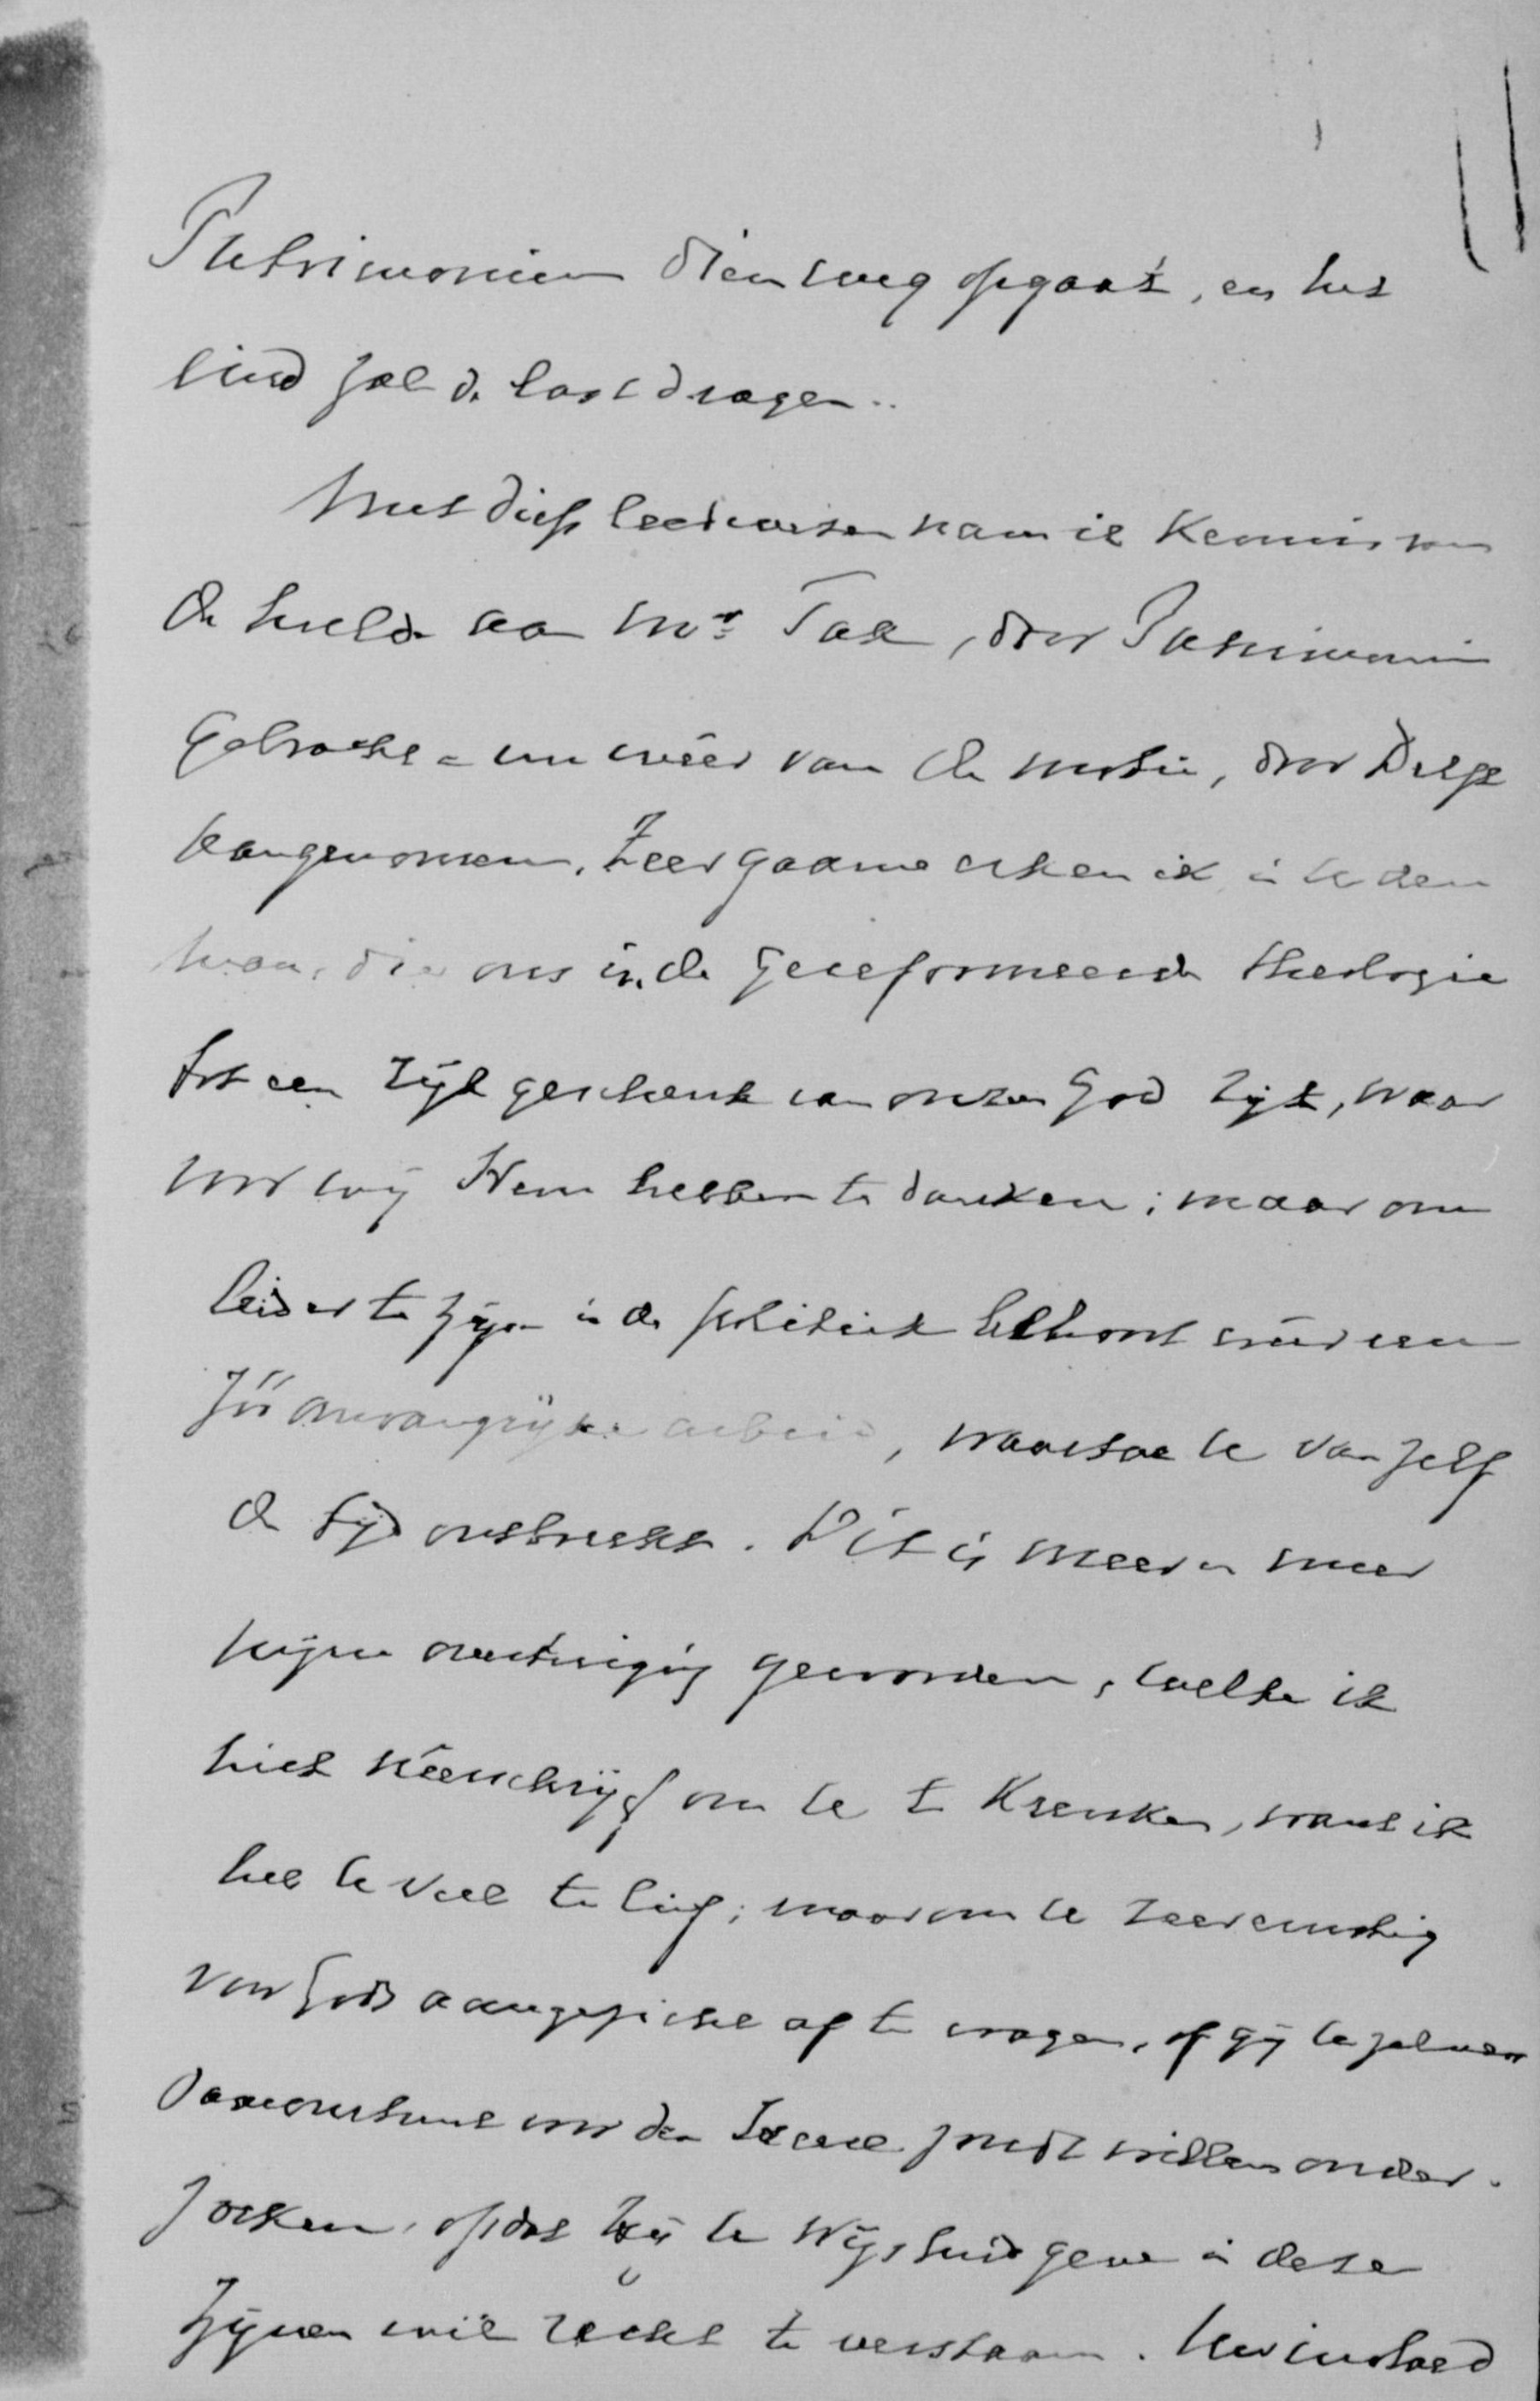 Patrimonium dien weg opgaat, en het
eind zal de last dragen..
Met diep leedwesen nam ik kennis van
de hulde aan Mr. Tak, door Patrimonium
gebracht en weer van de motie, door Delft
aangenomen. Zeer gaarne erken ik in U den
man, die ons in de Gereformeerde theologie
tot een rijk geschenk van onzen God zijt, waar
voor wij Hem hebben te danken; maar om
leider te zijn in de politiek behoort weer een
zóó omvangrijke arbeid, waartoe U van zelf
de tijd ontbreekt. Dit is meer en meer
mijne overtuiging geworden, welke ik
niet neerschrijf om U te krenken, want ik
heb U veel te lief; maar om U zeer ernstig
voor Gods aangezicht af te vragen, of gij U zelven
daaromtrent voor den Heere zoudt willen onder-
zoeken, opdat Hij U wijsheid geve in dezen
Zijnen wil recht te verstaan. Uw invloed